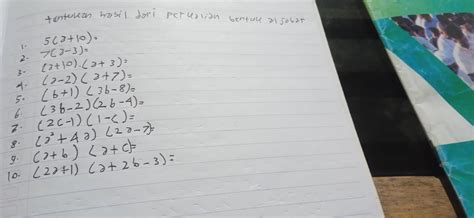 tentukan hasil dari perkalian bentuk aljabar
1. 5(a+10)=
2. 7(a-3)=
3. (a+10).(a+3)=
4. (a-2)(a+7)=
5. (b+1)(3b-8)=
6. (3b-2)(2b-4)=
7. (2c-1)(1-c)=
8. (a²+4a)(2a-7)=
9. (a+b)(a+c)=
10. (2a+1)(a+2b-3)=